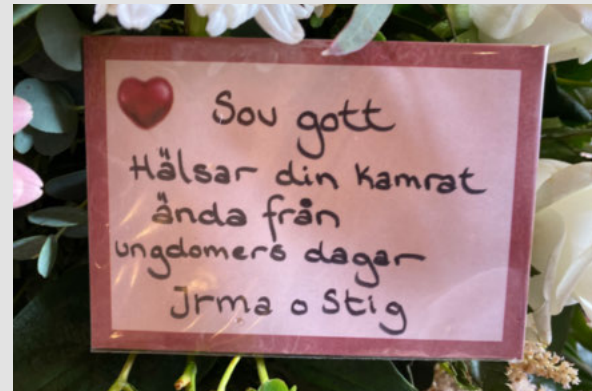 Sov gott
Hälsar din kamrat
ända från
ungdomers dagar
Irma o Stig